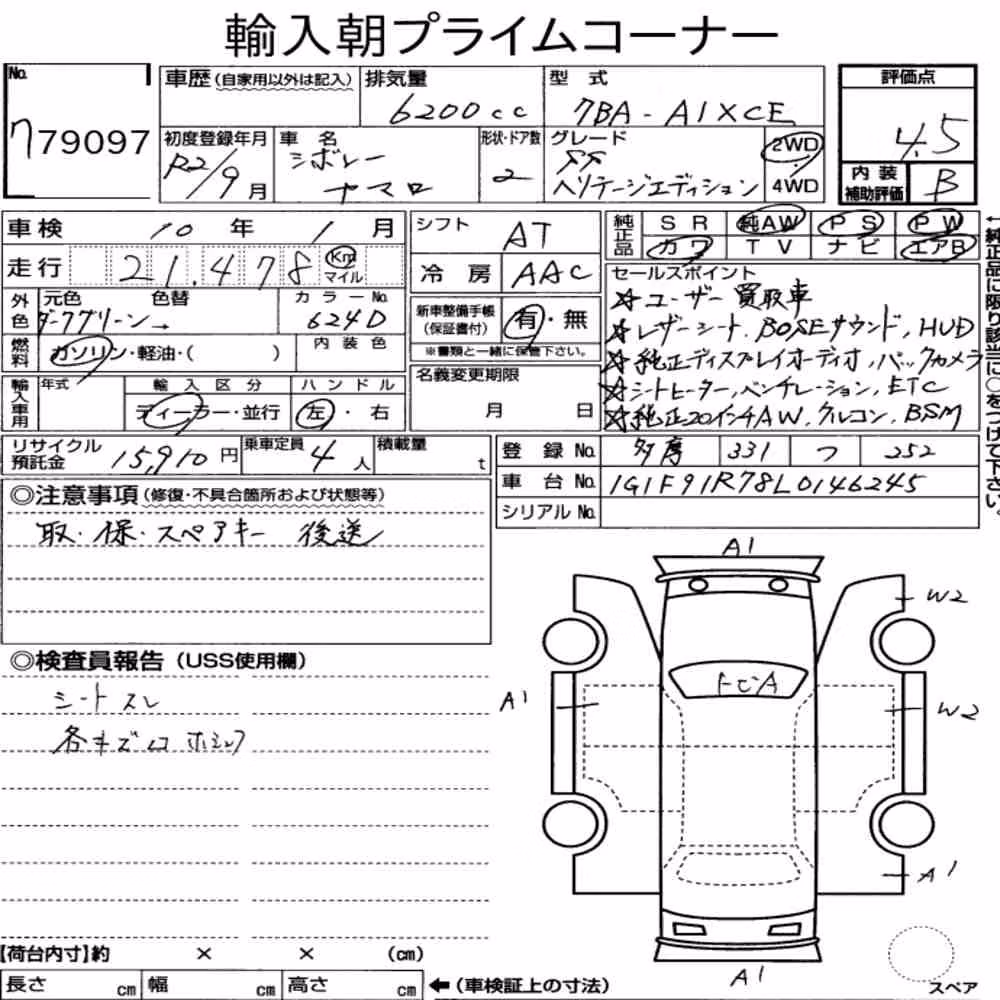 輸入朝プライムコーナー
No. 779097
車歴 (自家用以外は記入)
排気量 6200cc
型式 7BA-A1XCE
評価点 4.5
初度登録年月 R2/9月
車名 シボレー カマロ
形状・ドア数 2
グレード SS ヘリテージエディション
2WD・4WD
内装補助評価 B
車検 10年 1月
走行 21,478 Km マイル
シフト AT
冷房 AAC
純正品 SR 純AW PS PW
カワ TV ナビ エアB
外色 元色 色替 ダークグリーン→
カラーNo. 624D
内装色
燃料 ガソリン・軽油・( )
新車整備手帳 (保証書付) 有・無
※書類と一緒に保管下さい。
輸入車用 年式 輸入区分 ディーラー・並行 ハンドル 左・右
名義変更期限 月 日
セールスポイント
☆ユーザー買取車
☆レザーシート、BOSEサウンド、HUD
☆純正ディスプレイオーディオ、バックカメラ
☆シートヒーター、ベンチレーション、ETC
☆純正20インチAW、クルコン、BSM
←純正品に限り該当に○をつけて下さい。
リサイクル預託金 15,910円
乗車定員 4人
積載量 t
登録No. 多摩 331 つ 252
車台No. 1G1F91R78L0146245
シリアルNo.
◎注意事項 (修復・不具合箇所および状態等)
取・保・スペアキー 後送
◎検査員報告 (USS使用欄)
シートスレ
各キズ
A1
W2
A1
W2
A1
A1
スペア
【荷台内寸】約 × × (cm)
長さ cm 幅 cm 高さ cm ←(車検証上の寸法)